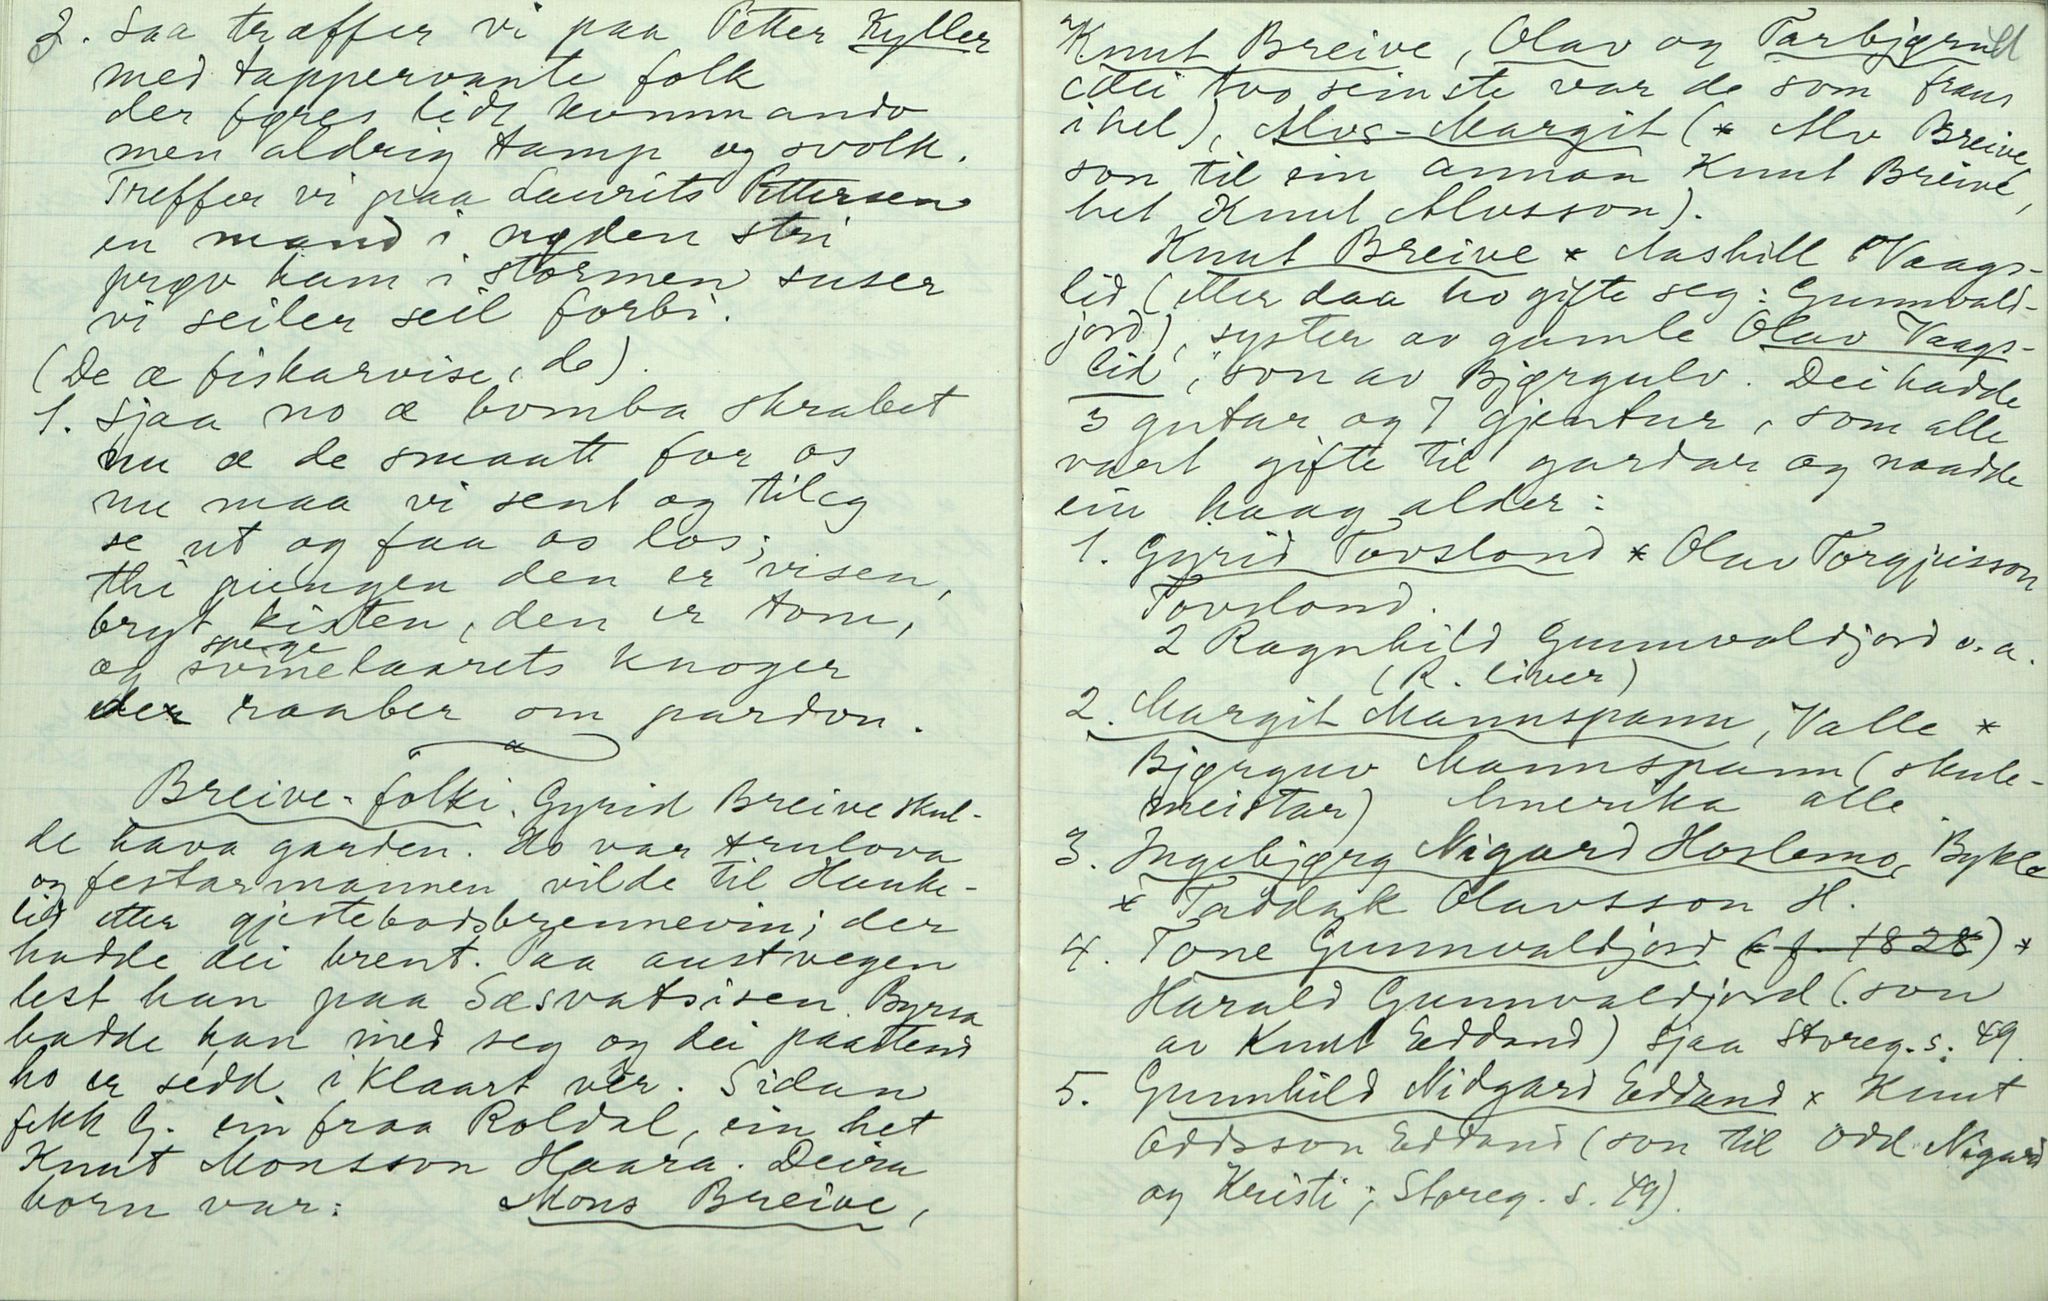 2. Saa træffer vi paa Petter Kyller
med tappervante folk
der føres lidt kommando
men aldrig tamp og svolk.
Treffer vi paa Laurits Pettersen
en mand i nøden stri
prøv ham i stormen suser
vi seiler seil forbi.
(De æ fiskarvise, de).
1. Sjaa no æ bomba skrabet
nu æ de smaatt for os
nu maa vi sent og tileg
se ut og faa os los;
thi pungen den er visen,
bryt kisten, den er tom,
spege
og svinelaarets knoger
der raaber om pardon.
Breive-folki. Gyrid Breive skul-
de hava garden. Ho var trulova
og festarmannen vilde til Hauke-
lid etter gjestebodsbrennevin; der
hadde dei brent. Aa austvegen
lest han paa Sæsvatsisen. Byrsa
hadde han med seg og dei paastend
ho er sedd i klaart ver. Sidan
fekk G. ein fraa Roldal, ein het
Knut Monsson Haara. Deira
born var: Mons Breive,
Knut Breive, Olav og Tarbjørn
(dei tvo seinste var de som fraus
ihel), Alvs-Margit (* Alv Breive,
son til ein annan Knut Breive,
het Knut Alvsson).
Knut Breive * Aashill Vaags-
lid (etter daa ho gifte seg: Gunnvald-
jord), syster av gamle Olav Vaags-
lid, son av Bjørgulv. Dei hadde
3 gutar og 7 gjentur, som alle
vart gifte til gardar og naadde
ein haag alder:
1. Gyrid Tovsland * Olav Torgjusson
Tovsland.
2 Ragnhild Gunnvaldjord o.a.
(R. liver)
2. Margit Mannspann, Valle *
Bjørguv Mannspann (skule-
meistar) Amerika alle
3. Ingebjørg Nigard Hoslemo, Bykle
* Taddak Olavsson H.
4. Tone Gunnvaldjord (f. 1828) *
Harald Gunnvaldjord (son
av Knut Eddand) sjaa Storeg. s. 49.
5. Gunnhild Nidgard Eddand x Knut
Oddsson Eddand (son til Odd Nigard
og Kristi; Storeg. s. 49).